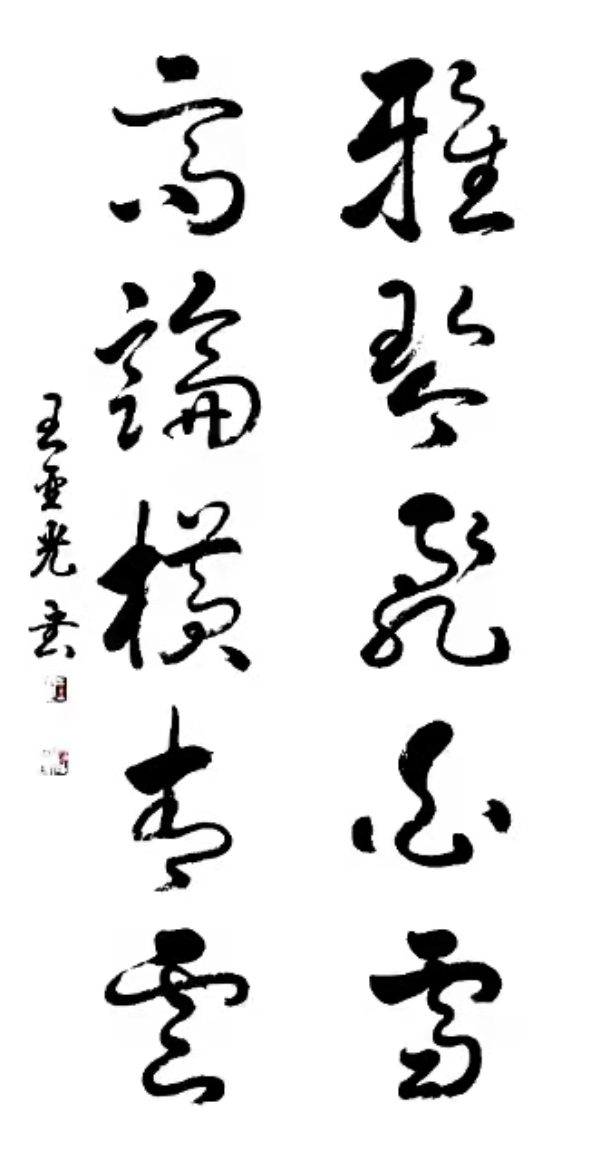 雅琴飛白雪
高論橫青雲
王亞光書